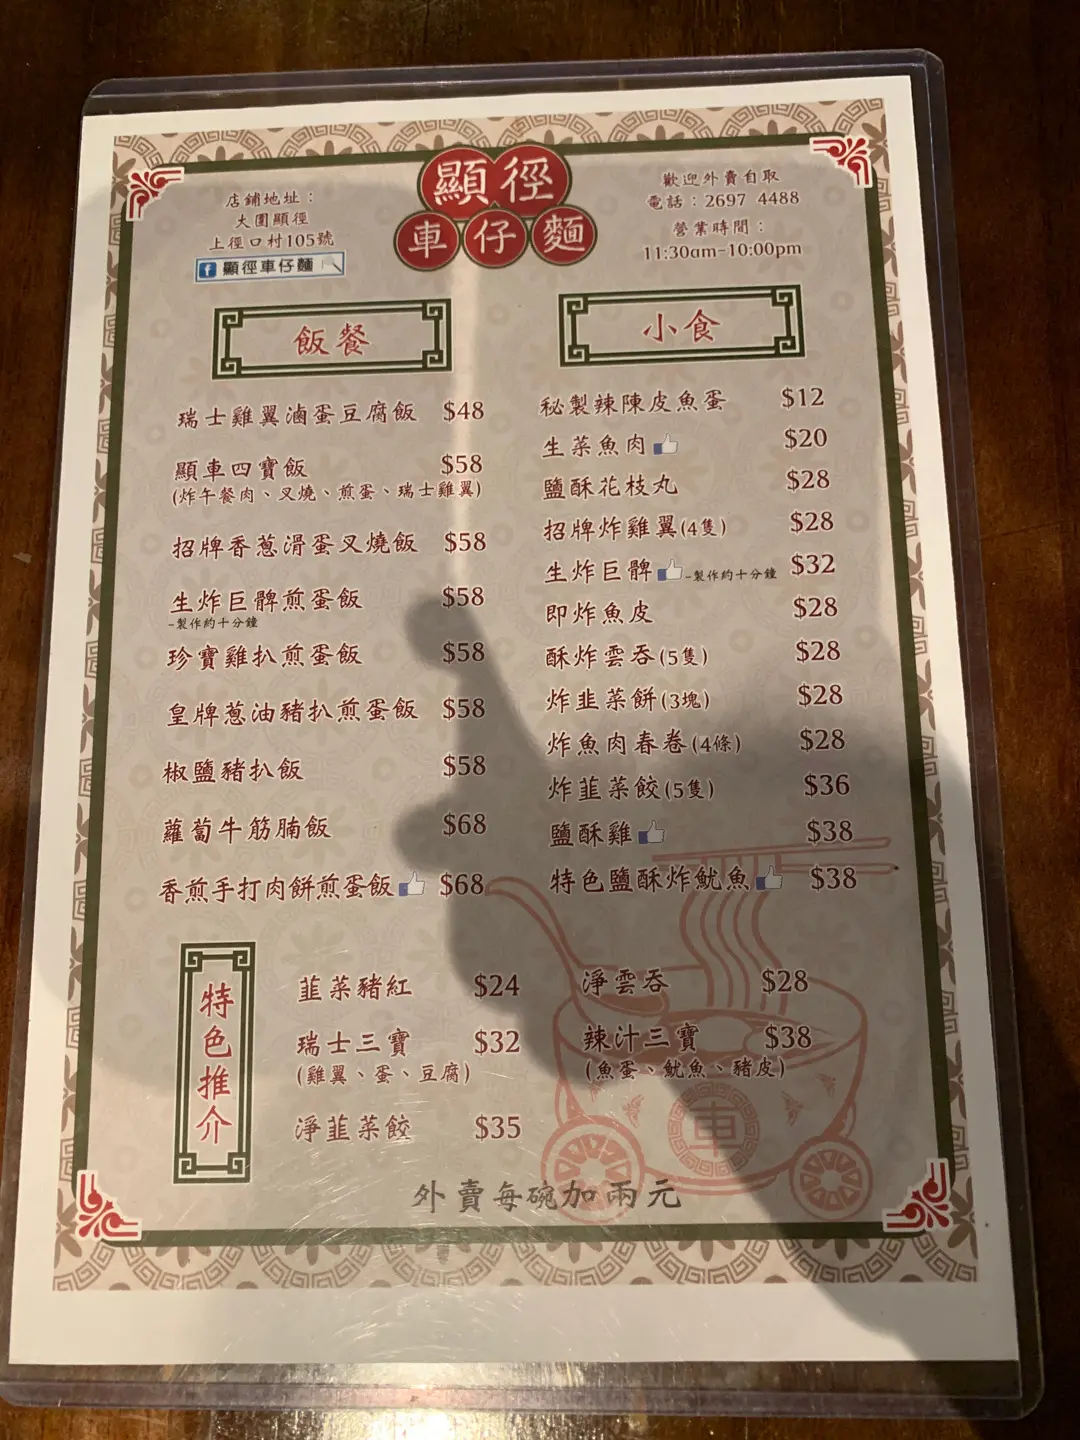 店鋪地址：
大圍顯徑
上徑口村105號
f 顯徑車仔麵
顯徑
車仔麵
歡迎外賣自取
電話：2697 4488
營業時間：
11:30am-10:00pm
飯餐
瑞士雞翼滷蛋豆腐飯 $48
顯車四寶飯 $58
(炸午餐肉、叉燒、煎蛋、瑞士雞翼)
招牌香蔥滑蛋叉燒飯 $58
生炸巨髀煎蛋飯 $58
-製作約十分鐘
珍寶雞扒煎蛋飯 $58
皇牌蔥油豬扒煎蛋飯 $58
椒鹽豬扒飯 $58
蘿蔔牛筋腩飯 $68
香煎手打肉餅煎蛋飯 $68
小食
秘製辣陳皮魚蛋 $12
生菜魚肉 $20
鹽酥花枝丸 $28
招牌炸雞翼(4隻) $28
生炸巨髀 -製作約十分鐘 $32
即炸魚皮 $28
酥炸雲吞(5隻) $28
炸韮菜餅(3塊) $28
炸魚肉春卷(4條) $28
炸韮菜餃(5隻) $36
鹽酥雞 $38
特色鹽酥炸魷魚 $38
特色推介
韮菜豬紅 $24
瑞士三寶 $32
(雞翼、蛋、豆腐)
淨韮菜餃 $35
淨雲吞 $28
辣汁三寶 $38
(魚蛋、魷魚、豬皮)
車
外賣每碗加兩元